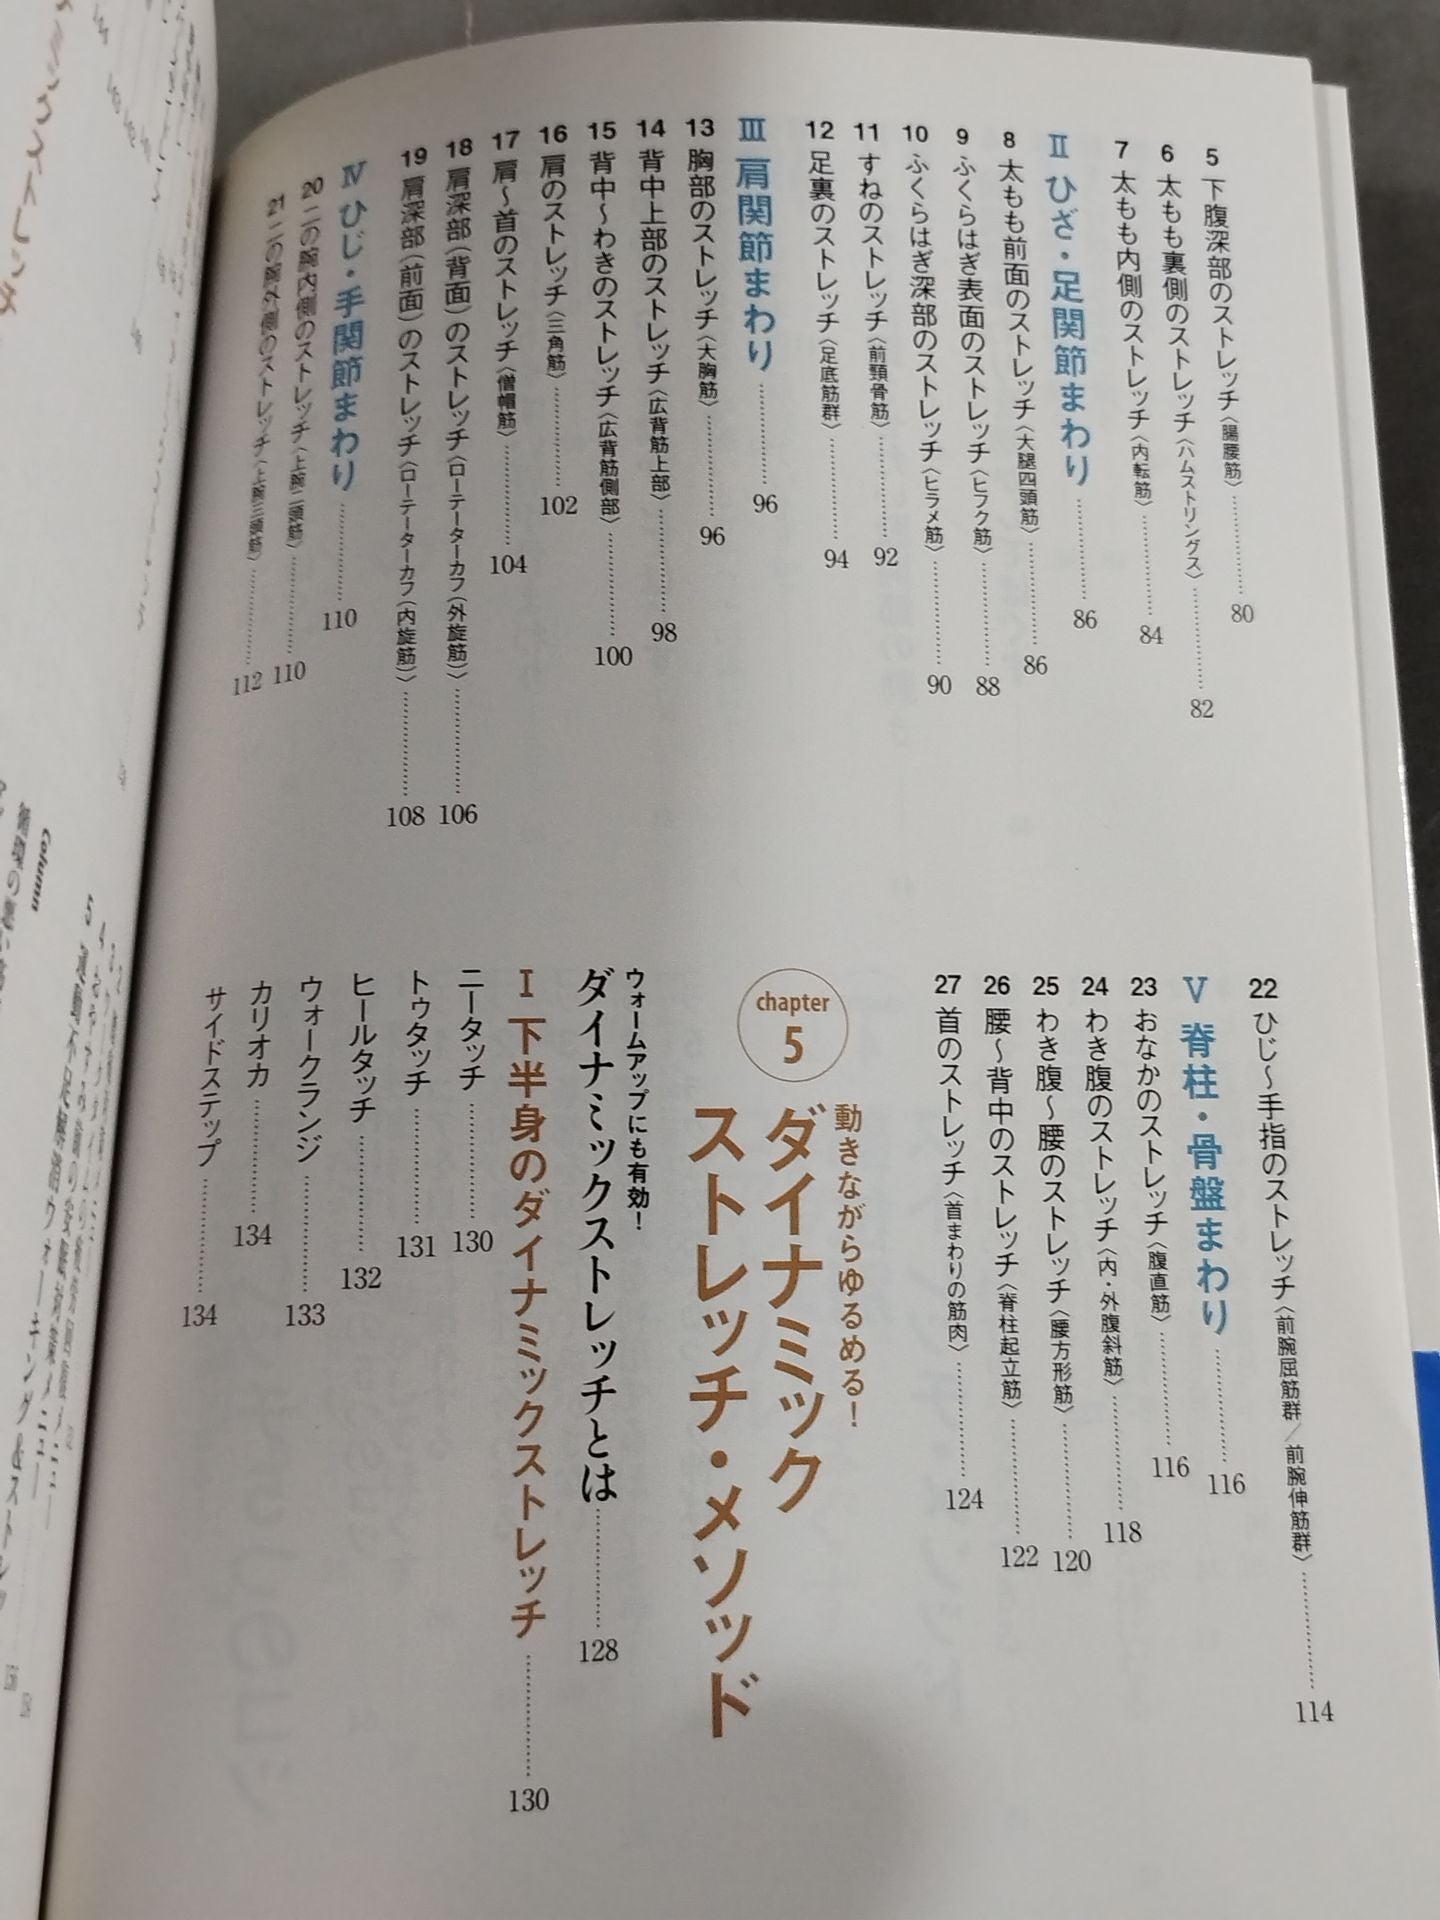 5 下腹深部のストレッチ〈腸腰筋〉 80
6 太もも裏側のストレッチ〈ハムストリングス〉 82
7 太もも内側のストレッチ〈内転筋〉 84
Ⅱ ひざ・足関節まわり 86
8 太もも前面のストレッチ〈大腿四頭筋〉 86
9 ふくらはぎ表面のストレッチ〈ヒフク筋〉 88
10 ふくらはぎ深部のストレッチ〈ヒラメ筋〉 90
11 すねのストレッチ〈前頸骨筋〉 92
12 足裏のストレッチ〈足底筋群〉 94
Ⅲ 肩関節まわり 96
13 胸部のストレッチ〈大胸筋〉 96
14 背中上部のストレッチ〈広背筋上部〉 98
15 背中〜わきのストレッチ〈広背筋側部〉 100
16 肩のストレッチ〈三角筋〉 102
17 肩〜首のストレッチ〈僧帽筋〉 104
18 肩深部(背面)のストレッチ〈ローテーターカフ(外旋筋)〉 106
19 肩深部(前面)のストレッチ〈ローテーターカフ(内旋筋)〉 108
Ⅳ ひじ・手関節まわり 110
20 二の腕内側のストレッチ〈上腕二頭筋〉 110
21 二の腕外側のストレッチ〈上腕三頭筋〉 112
22 ひじ〜手指のストレッチ〈前腕屈筋群/前腕伸筋群〉 114
Ⅴ 脊柱・骨盤まわり 116
23 おなかのストレッチ〈腹直筋〉 116
24 わき腹のストレッチ〈内・外腹斜筋〉 118
25 わき腹〜腰のストレッチ〈腰方形筋〉 120
26 腰〜背中のストレッチ〈脊柱起立筋〉 122
27 首のストレッチ〈首まわりの筋肉〉 124
chapter
5
動きながらゆるめる!
ダイナミック
ストレッチ・メソッド
ウォームアップにも有効!
ダイナミックストレッチとは 128
Ⅰ 下半身のダイナミックストレッチ 130
ニータッチ 130
トゥタッチ 131
ヒールタッチ 132
ウォークランジ 133
カリオカ 134
サイドステップ 134
Column
5 運動不足解消ウォーキング&ストレッ